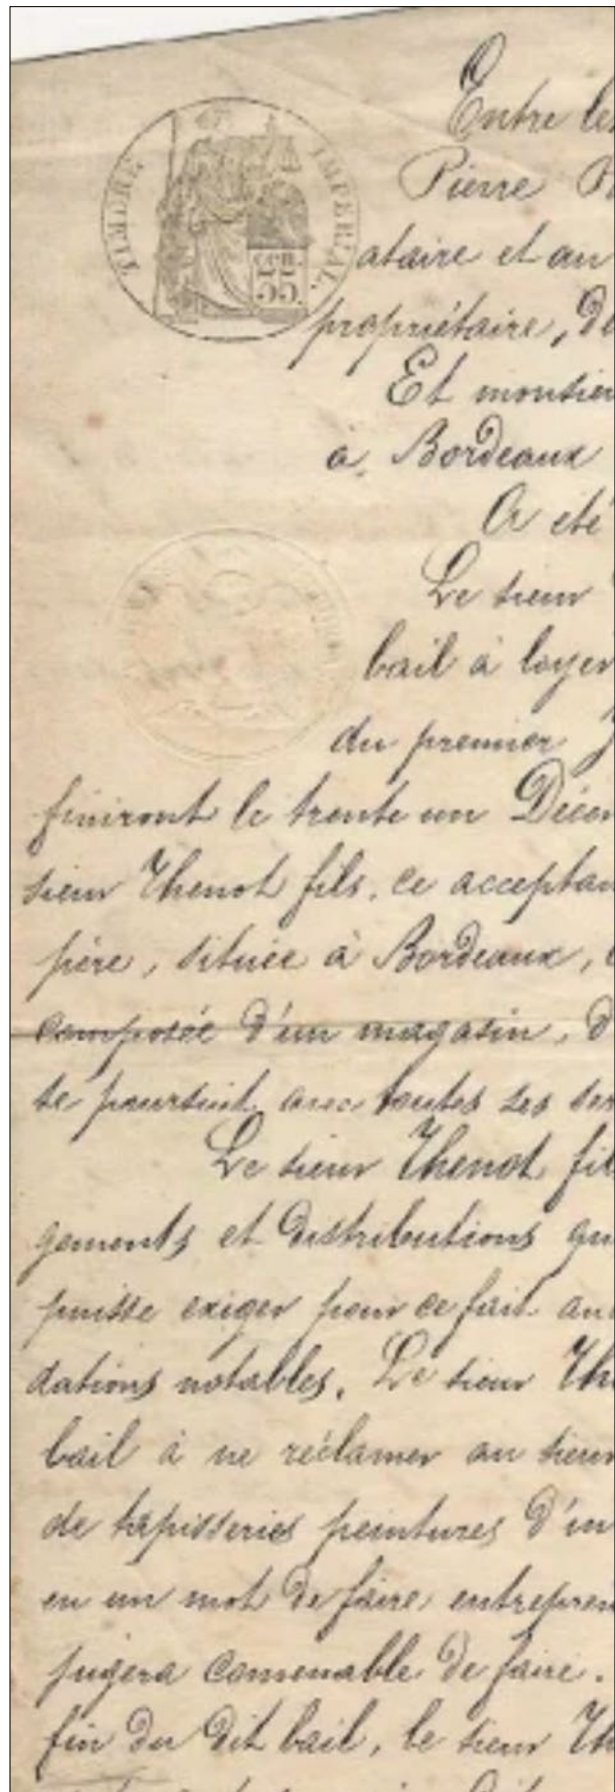 TIMBRE IMPERIAL
55
CEN.
55.
Entre les
Pierre
ataire et au
propriétaire, de
Et monsieu
à Bordeaux
A été
Le sieur
bail à loyer
du premier J
finiront le trente un Décem
sieur Thenot fils, ce acceptan
père, située à Bordeaux,
composée d'un magasin, d
se poursuit avec toutes ses
Le sieur Thenot fil
gements et distributions qu
puisse exiger pour ce fait au
dations notables. Le sieur The
bail à ne réclamer au sieur
de tapisseries peintures d'un
en un mot de faire entrepren
jugera convenable de faire.
fin du dit bail, le sieur The